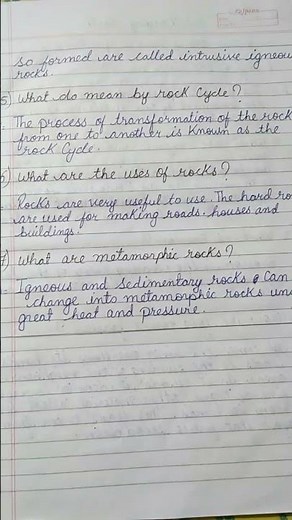 so formed are called intrusive igneou
rocks.
5) What do mean by rock Cycle?
The process of transformation of the rock
from one to another is known as the
rock Cycle.
6) What are the uses of rocks?
Rocks are very useful to use. The hard ro
are used for making roads, houses and
buildings.
7) What are metamorphic rocks?
Igneous and Sedimentary rocks Can
change into metamorphic rocks un
great heat and pressure.